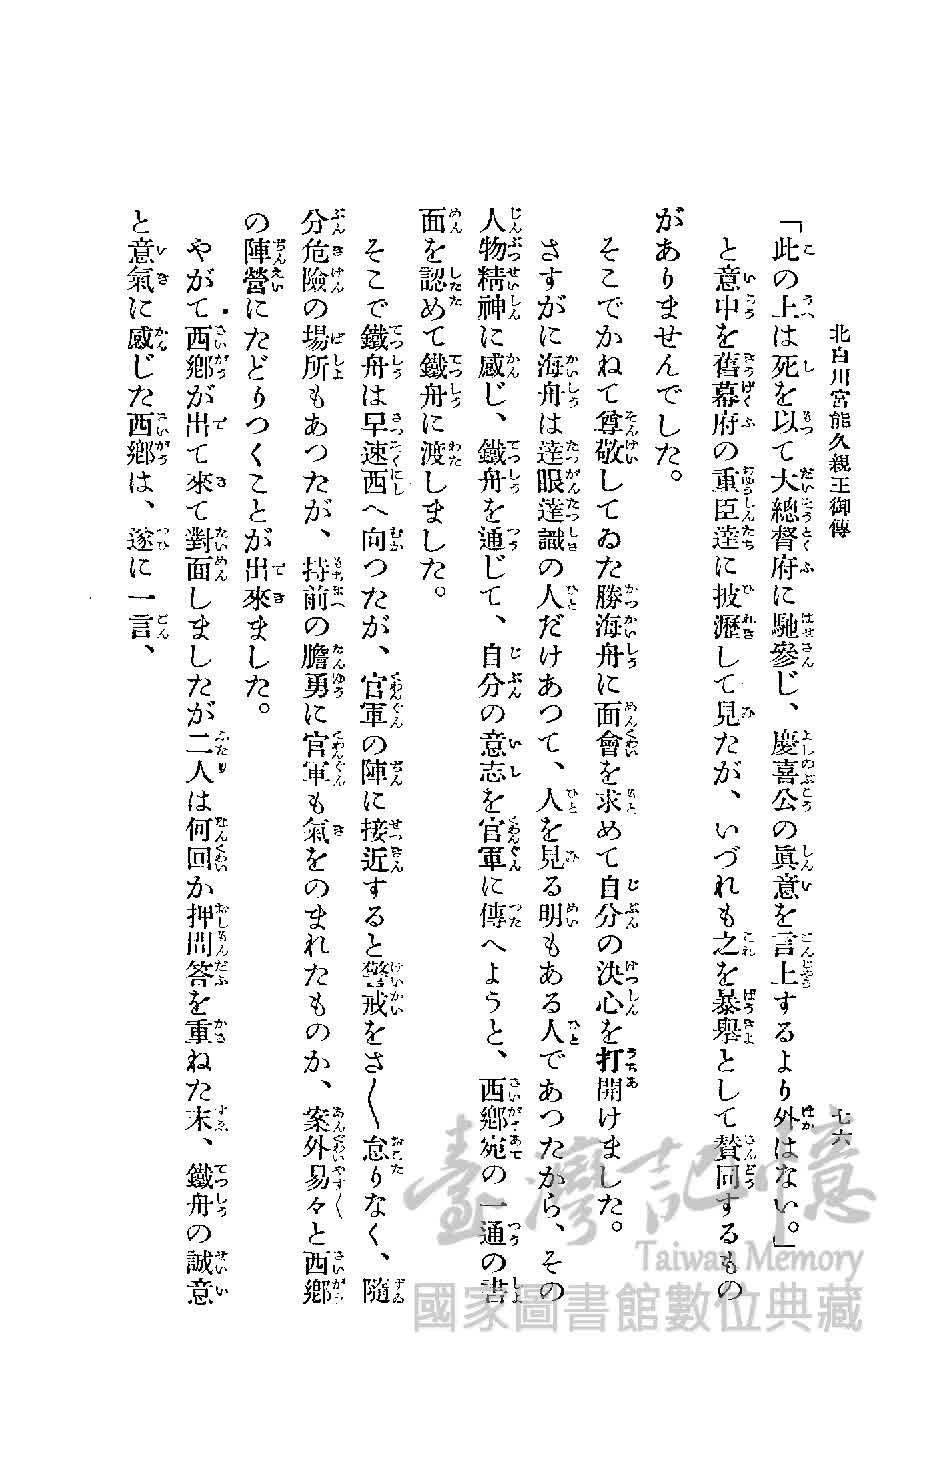 北白川宮能久親王御傳
七六
「此の上は死を以て大總督府に馳參じ、慶喜公の眞意を言上するより外はない。」
と意中を舊幕府の重臣達に披瀝して見たが、いづれも之を暴擧として賛同するもの
がありませんでした。
そこでかねて尊敬してゐた勝海舟に面會を求めて自分の決心を打開けました。
さすがに海舟は達眼達識の人だけあつて、人を見る明もある人であつたから、その
人物精神に感じ、鐵舟を通じて、自分の意志を官軍に傳へようと、西鄕宛の一通の書
面を認めて鐵舟に渡しました。
そこで鐵舟は早速西へ向つたが、官軍の陣に接近すると警戒をさ〱怠りなく、隨
分危險の場所もあつたが、持前の膽勇に官軍も氣をのまれたものか、案外易々と西鄕
の陣營にたどりつくことが出來ました。
やがて西鄕が出て來て對面しましたが二人は何回か押問答を重ねた末、鐵舟の誠意
と意氣に感じた西鄕は、遂に一言、
臺灣記憶
Taiwan Memory
國家圖書館數位典藏